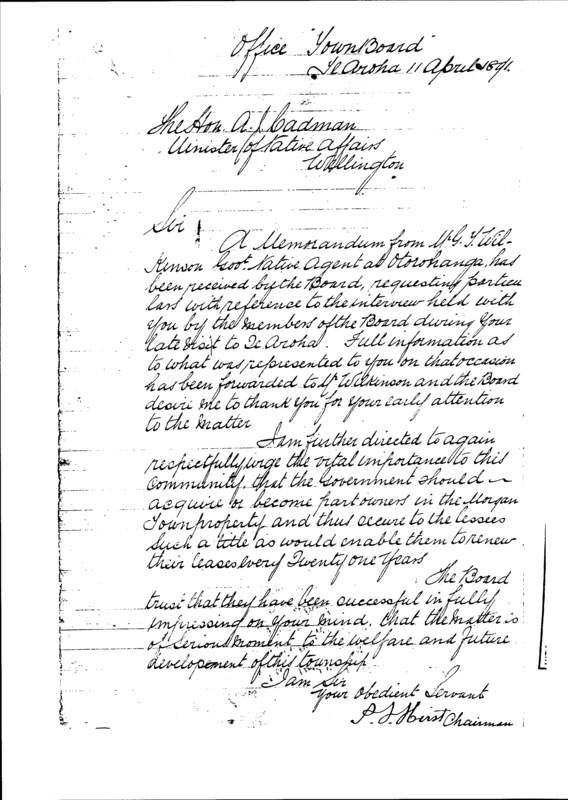 Office "Town Board"
Te Aroha 11 April 1891.
The Hon. A. J. Cadman
Minister of Native Affairs
Wellington
Sir
A Memorandum from Mr G. T. Wil-
kinson Govt. Native Agent at Otorohanga, has
been received by the Board, requesting particu
lars with reference to the interview held with
you by the members of the Board during your
late visit to Te Aroha. Full information as
to what was represented to you on that occasion
has been forwarded to Mr Wilkinson and the Board
desire me to thank you for your early attention
to the matter
I am further directed to again
respectfully urge the vital importance to this
community that the Government should
acquire or become part owners in the Morgan
Town property and thus secure to the lessees
such a title as would enable them to renew
their leases every Twenty one Years
The Board
trust that they have been successful in fully
impressing on your mind, that the matter is
of serious moment to the welfare and future
developement of this township
I am Sir
Your Obedient Servant
Hirst Chairman